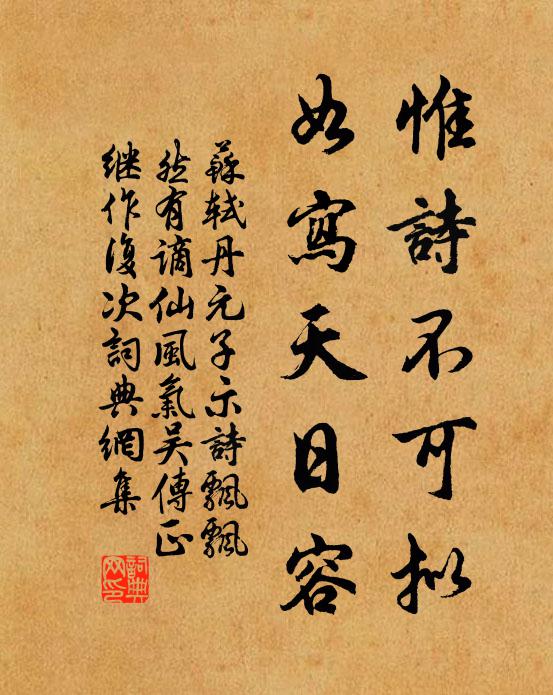 惟詩不可拟
如寫天日容
蘇軾丹元子示詩飄飄
然有谪仙風氣吴傳正
继作復次詞典網集
詞典網印